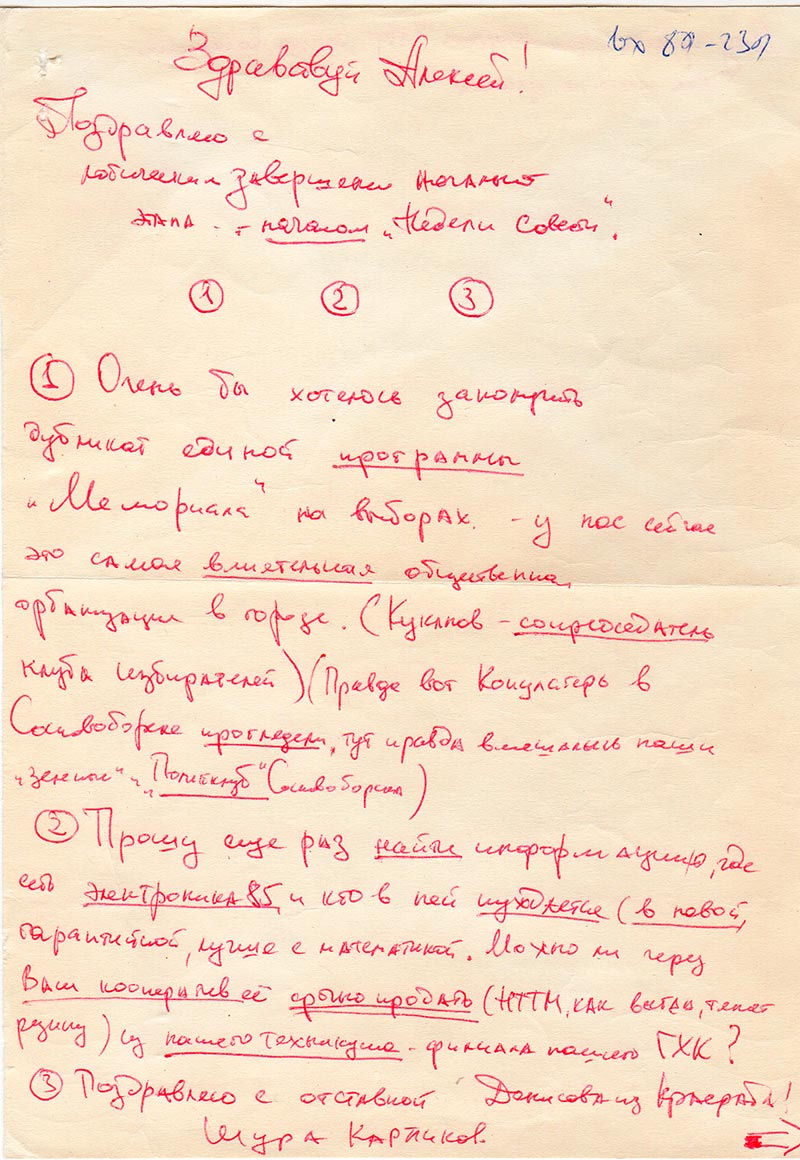 вх 89-230
Здравствуй Алексей!
Поздравляю с
завершени
этапа - началом „Недели Совести".
1 2 3
1 Очень бы хотелось закончить
дубликат единой программы
„Мемориала" на выборах. - у нас сейчас
это самая влиятельная общественная
организация в городе. (Куклнов - сопредседатель
клуба избирателей) (Правда вот в
Сосновоборске проглядели, тут правда вмешались наши
„зеленые" и „Политклуб" Сосновоборска)
2 Прошу еще раз найти информацию, где
есть электроника 85, и кто в ней нуждается (в новой,
гарантийной, лучше с математикой. Можно ли через
Ваш кооператив её срочно продать (НТТМ, как всегда, тянет
резину) из нашего техникума - филиала нашего ГХК?
3 Поздравляю с отставкой Денисова из Крайраба!
Шура Картиков